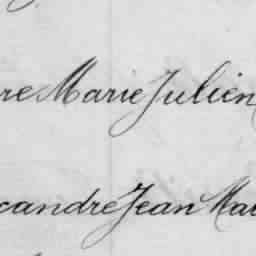 re Marie Julien
candre Jean Mar